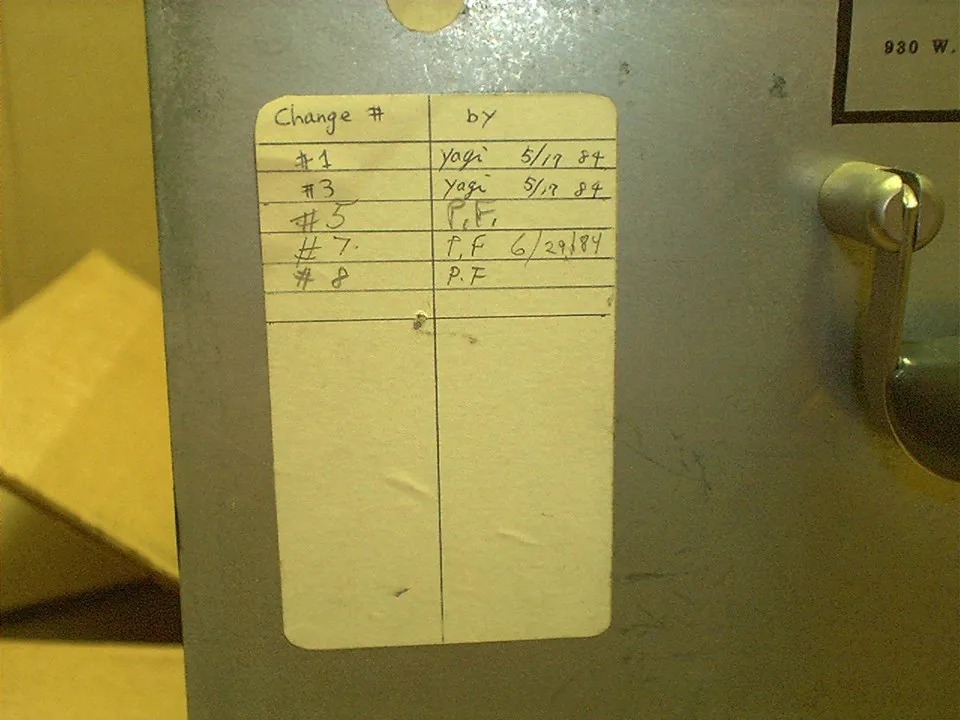 930 W.
Change # by
#1 yagi 5/17 84
#3 yagi 5/17 84
#5 P.F.
#7. P.F 6/29/84
#8 P.F